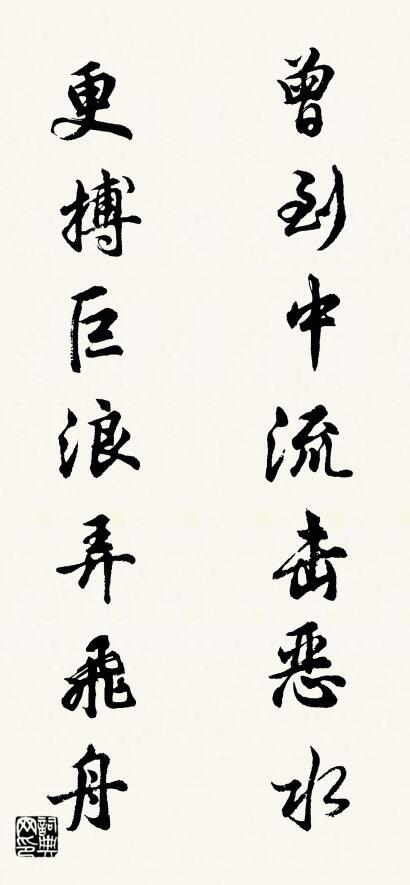 曾到中流击恶水
更搏巨浪弄飛舟
詞典网印